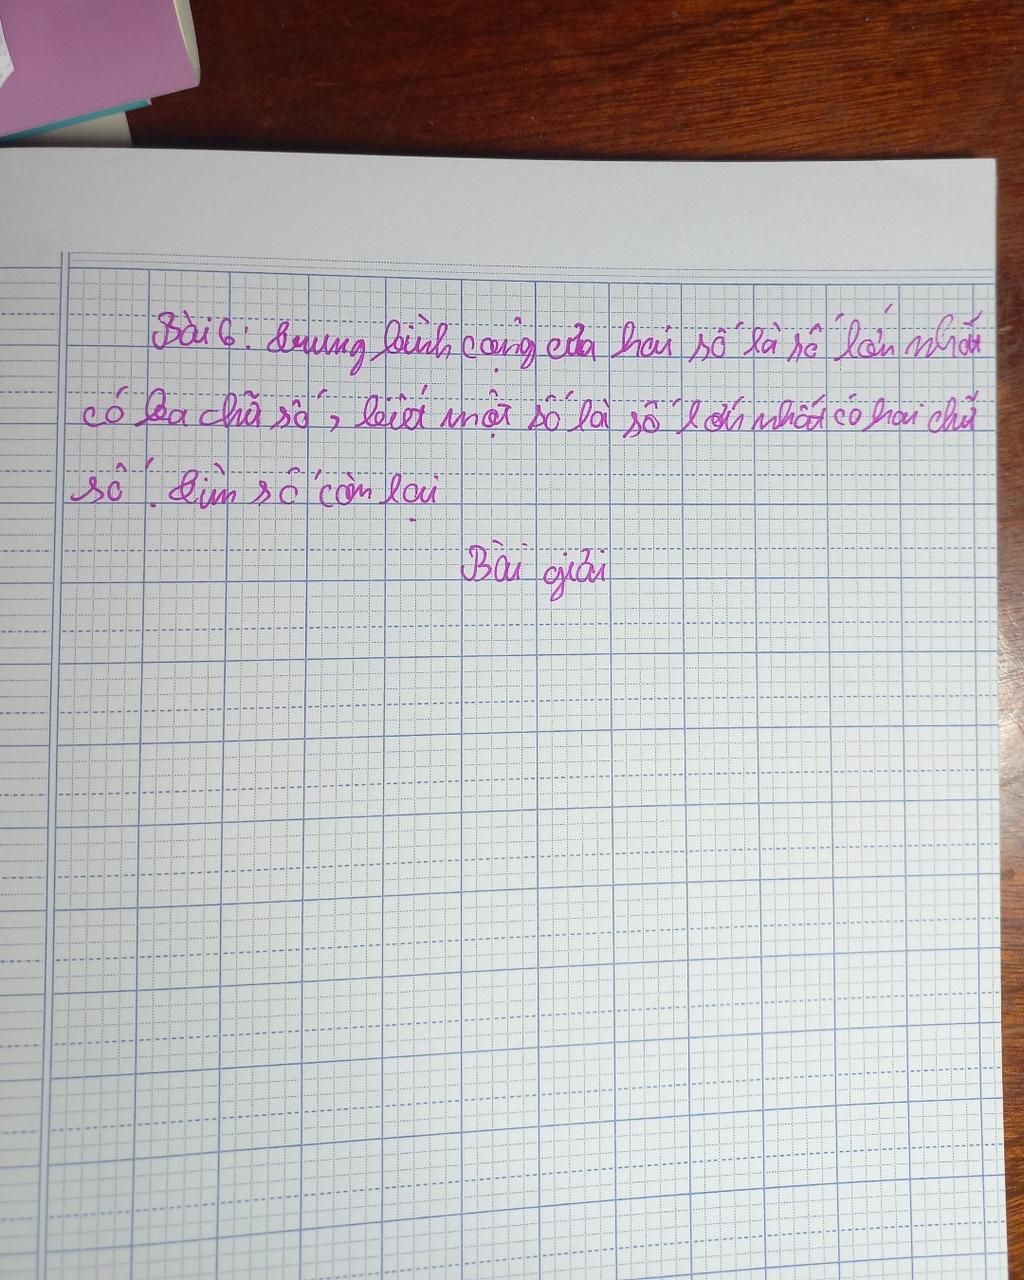 Bài 6: Trung bình cộng của hai số là số lớn nhất
có ba chữ số, biết một số là số lớn nhất có hai chữ
số. Tìm số còn lại
Bài giải